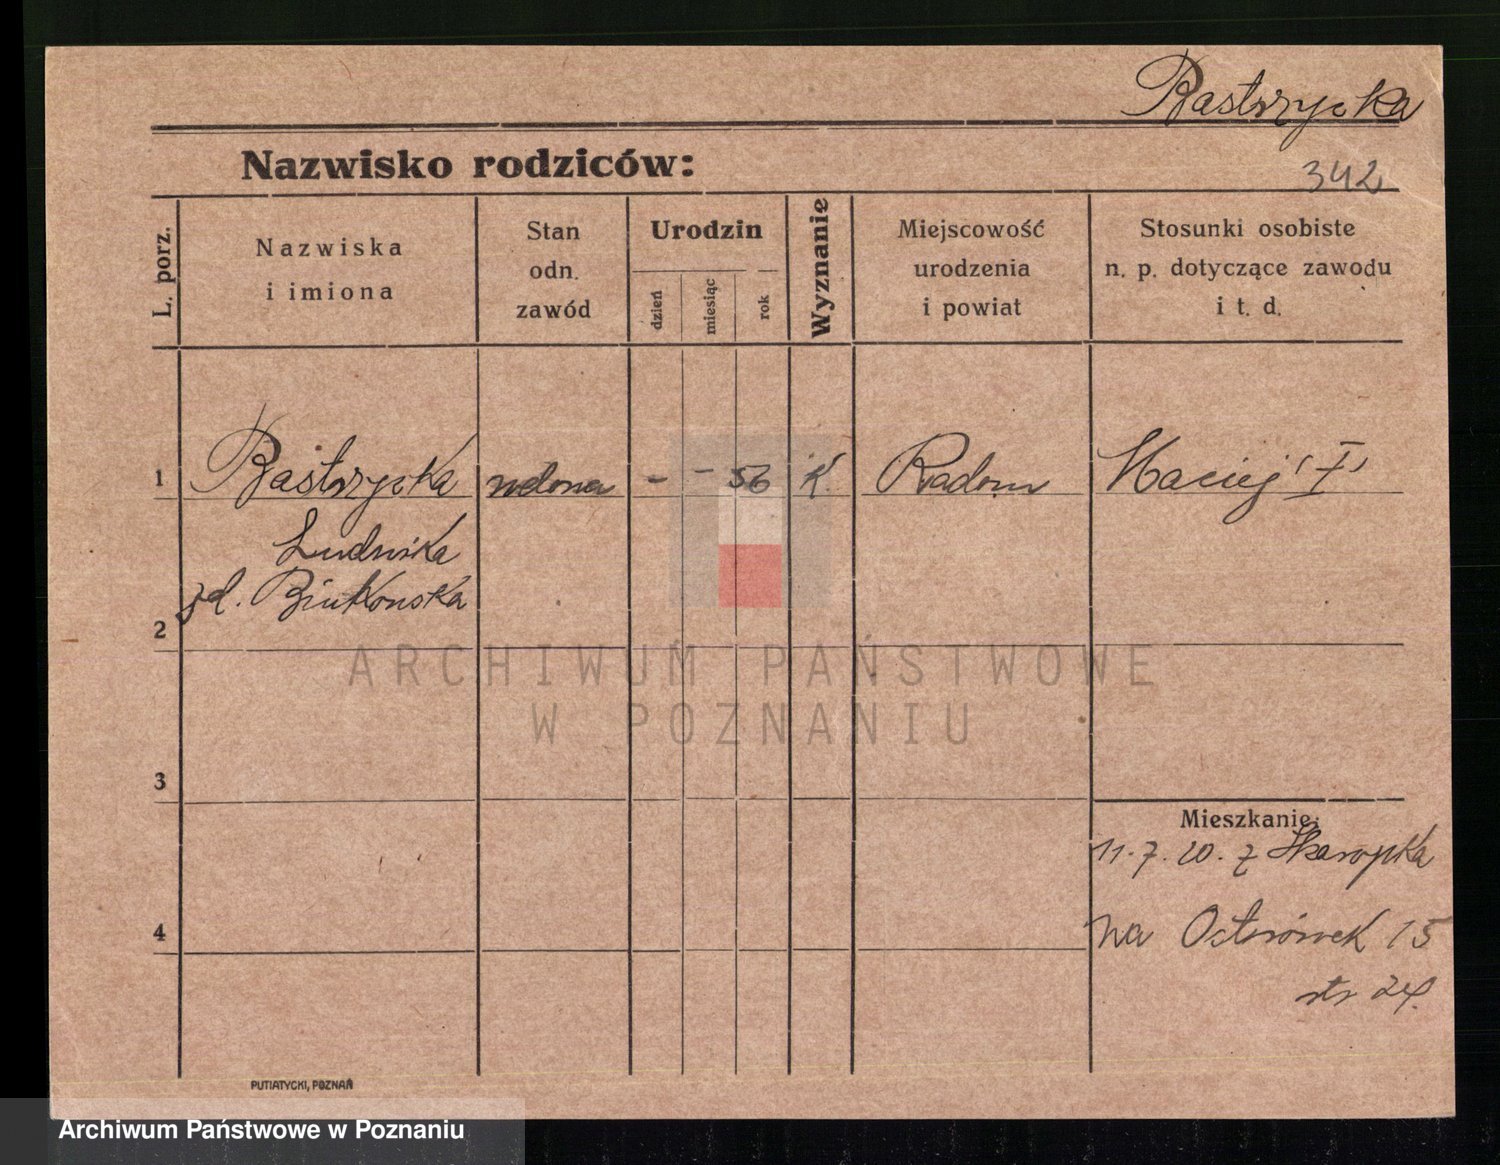 Bastrzycka
Nazwisko rodziców:
342
L. porz.
Nazwiska
i imiona
Stan
odn.
zawód
Urodzin
dzień
miesiąc
rok
Wyznanie
Miejscowość
urodzenia
i powiat
Stosunki osobiste
n. p. dotyczące zawodu
i t. d.
1 Bastrzycka wdowa - - 56 K. Radom Maciej
Ludwika
2
ARCHIWUM PAŃSTWOWE
W POZNANIU
3
Mieszkanie:
11.7.20. z
4
na Ostrówek 15
str 24.
PUTIATYCKI, POZNAŃ
Archiwum Państwowe w Poznaniu